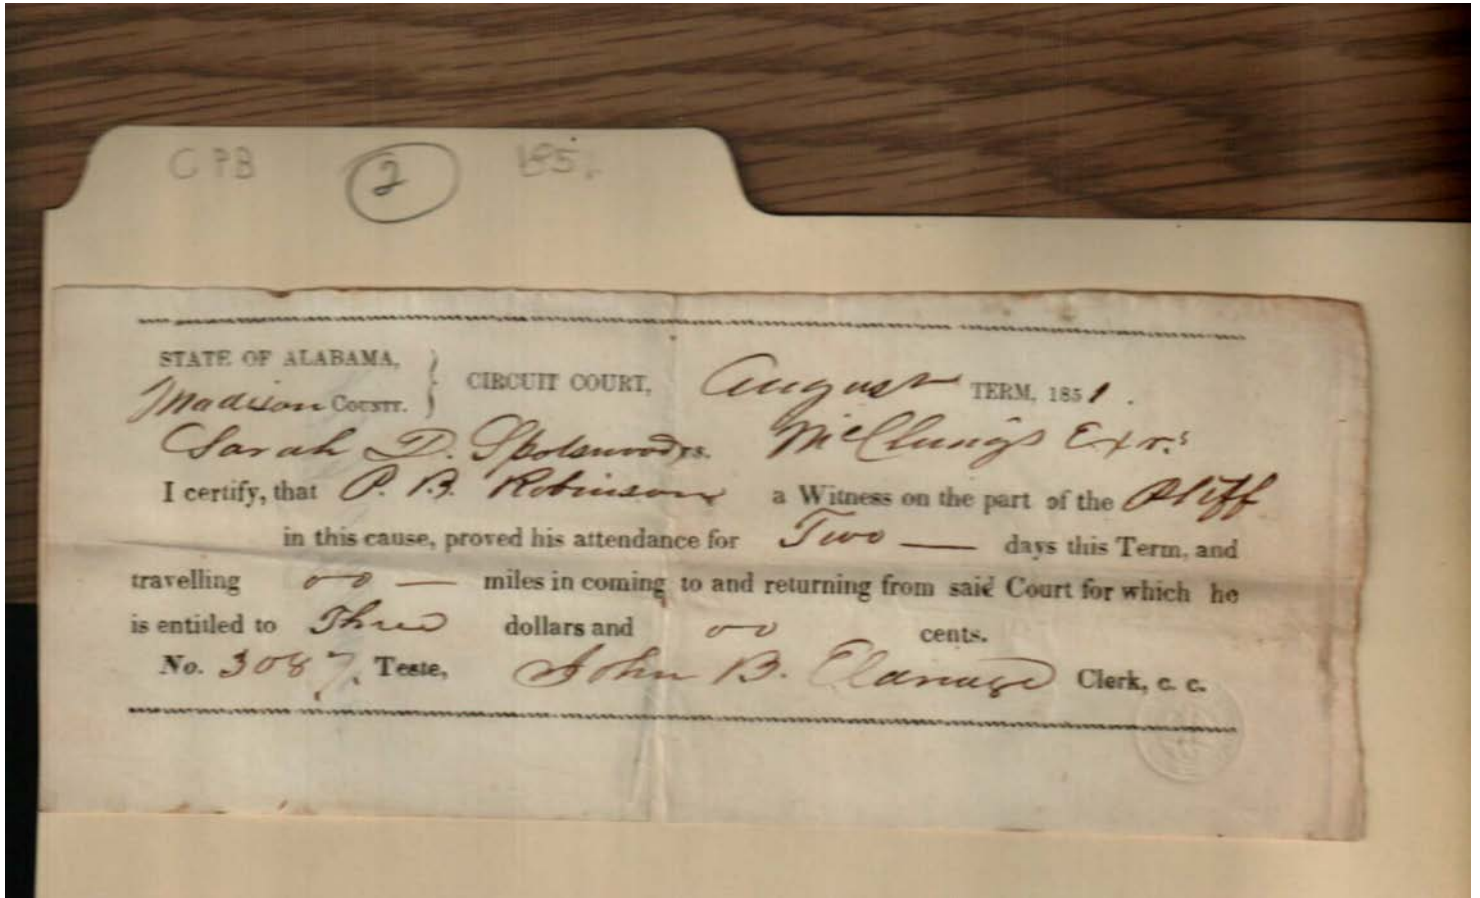 CPB 2 1851
STATE OF ALABAMA,
Madison COUNTY. } CIRCUIT COURT, August TERM, 1851.
Sarah D. Spotswood vs. McClung's Exrs
I certify, that P. B. Robinson a Witness on the part of the Pltff
in this cause, proved his attendance for Two — days this Term, and
travelling 00 — miles in coming to and returning from said Court for which he
is entitled to Three dollars and 00 cents.
No. 3087, Teste, John B. Clerk, c. c.